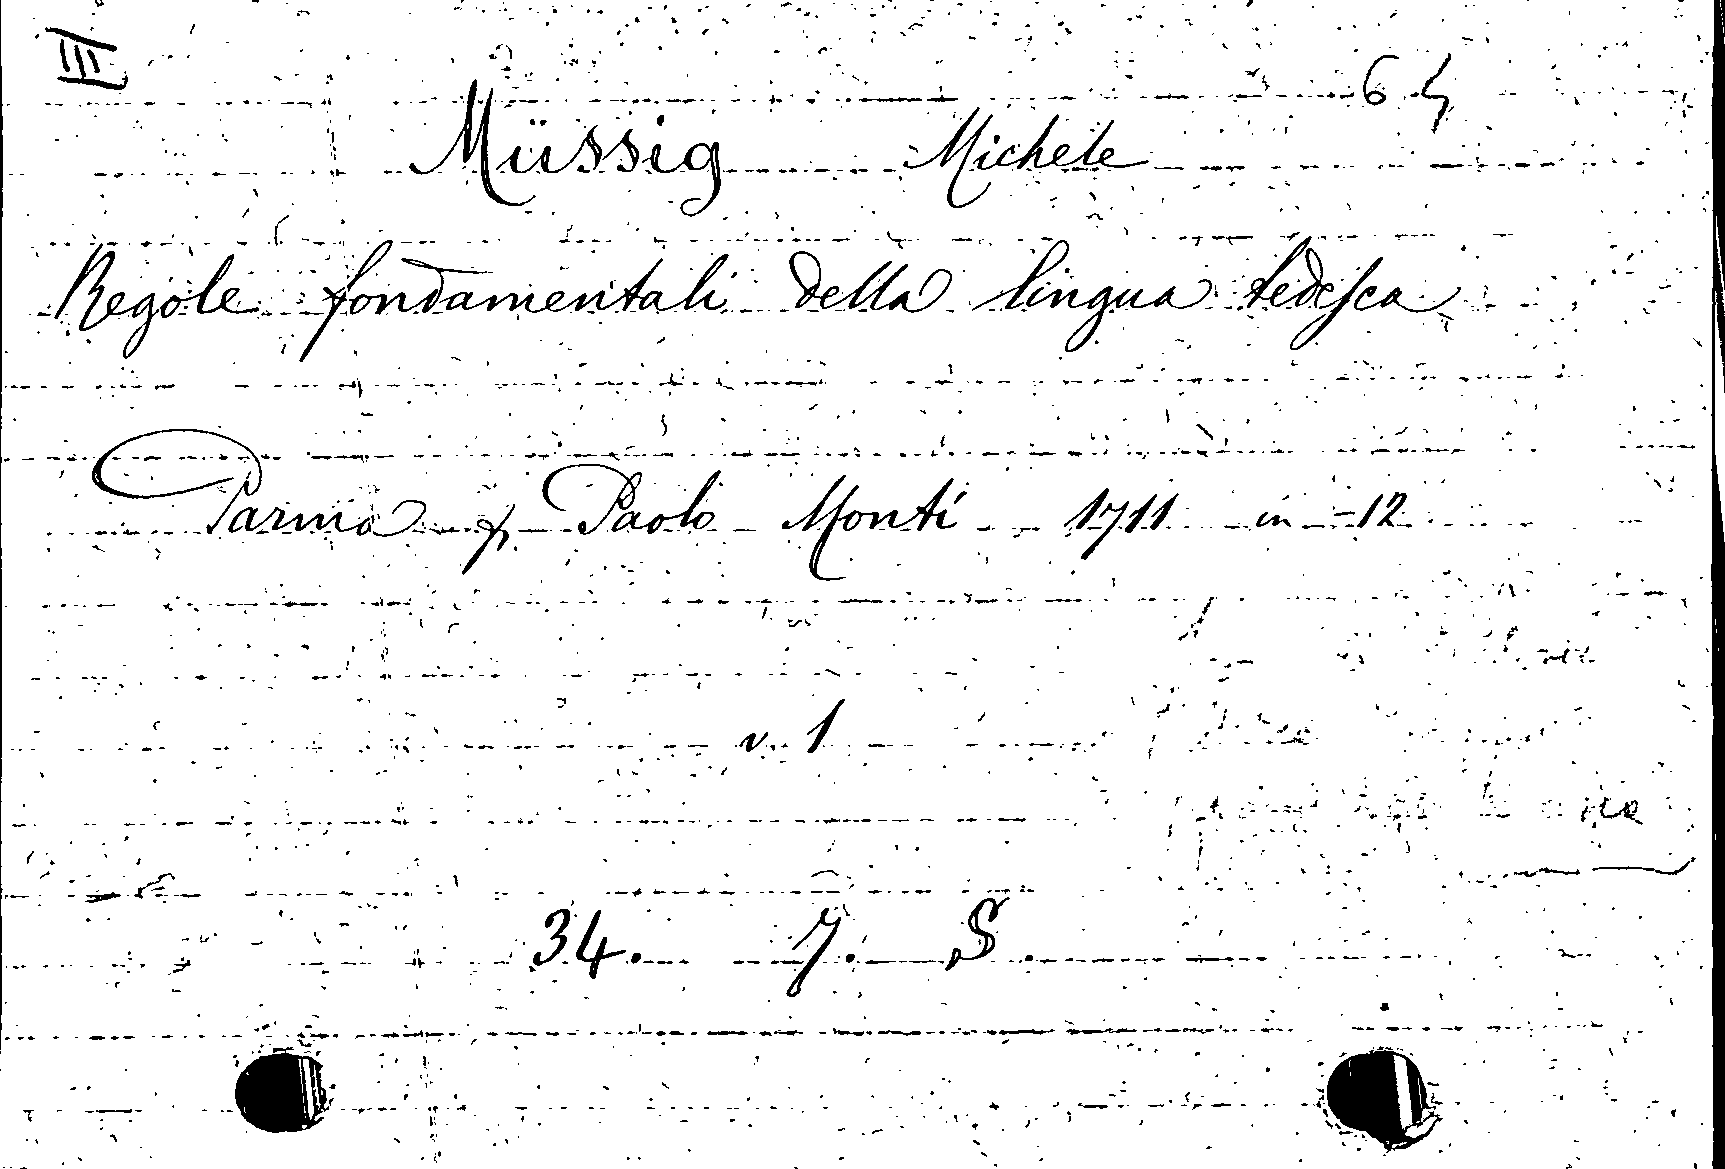 III
6
Müssig Michele
Regole fondamentali della lingua tedesca
Parma Paolo Monti 1711 in -12
v. 1
34. 7. S.